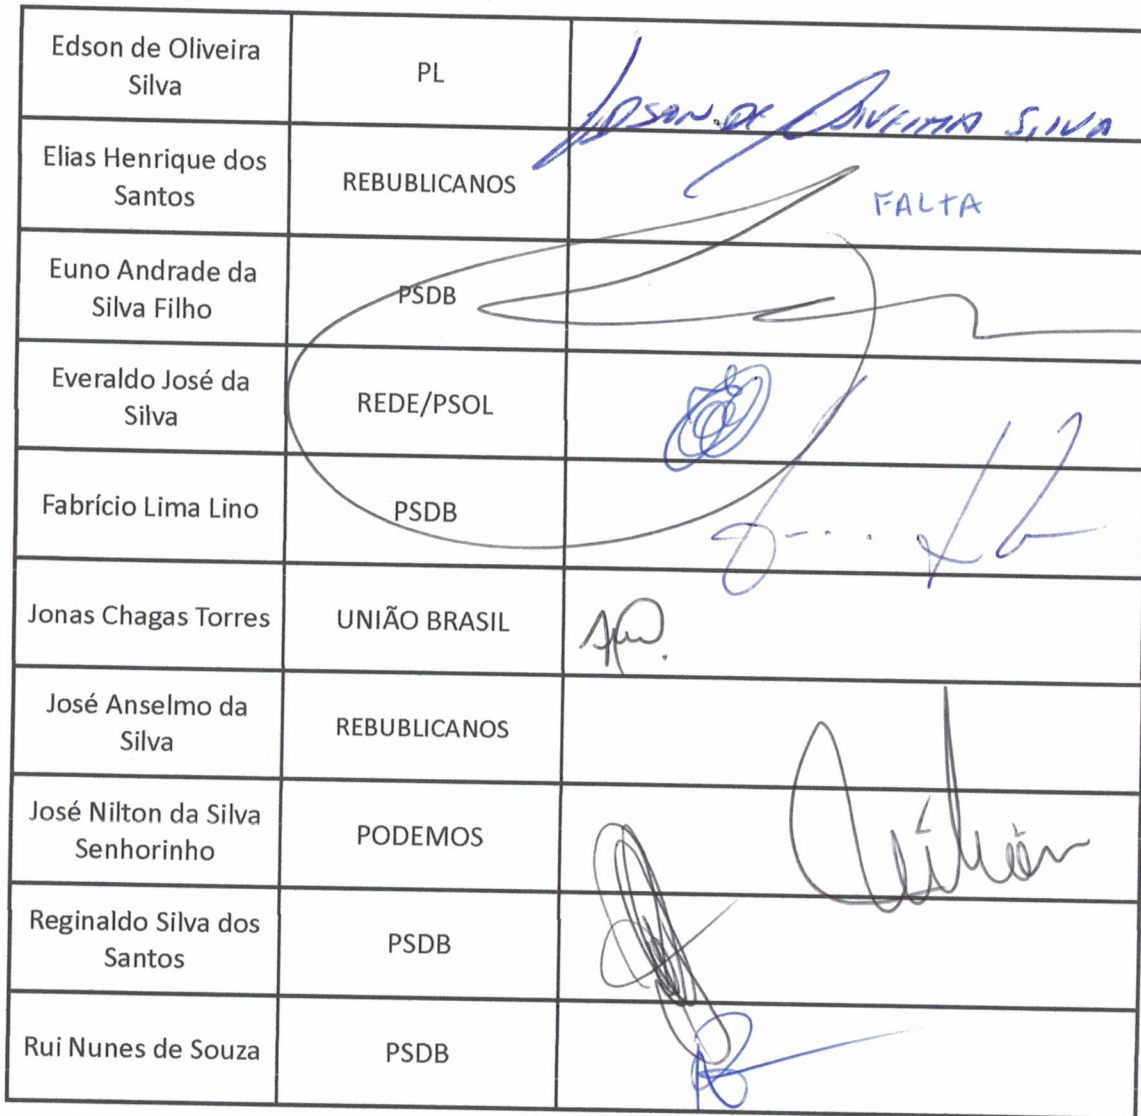 Edson de Oliveira
Silva
PL
EDSON DE OLIVEIRA SILVA
Elias Henrique dos
Santos
REBUBLICANOS
FALTA
Euno Andrade da
Silva Filho
PSDB
Everaldo José da
Silva
REDE/PSOL
Fabrício Lima Lino
PSDB
Jonas Chagas Torres
UNIÃO BRASIL
José Anselmo da
Silva
REBUBLICANOS
José Nilton da Silva
Senhorinho
PODEMOS
Reginaldo Silva dos
Santos
PSDB
Rui Nunes de Souza
PSDB